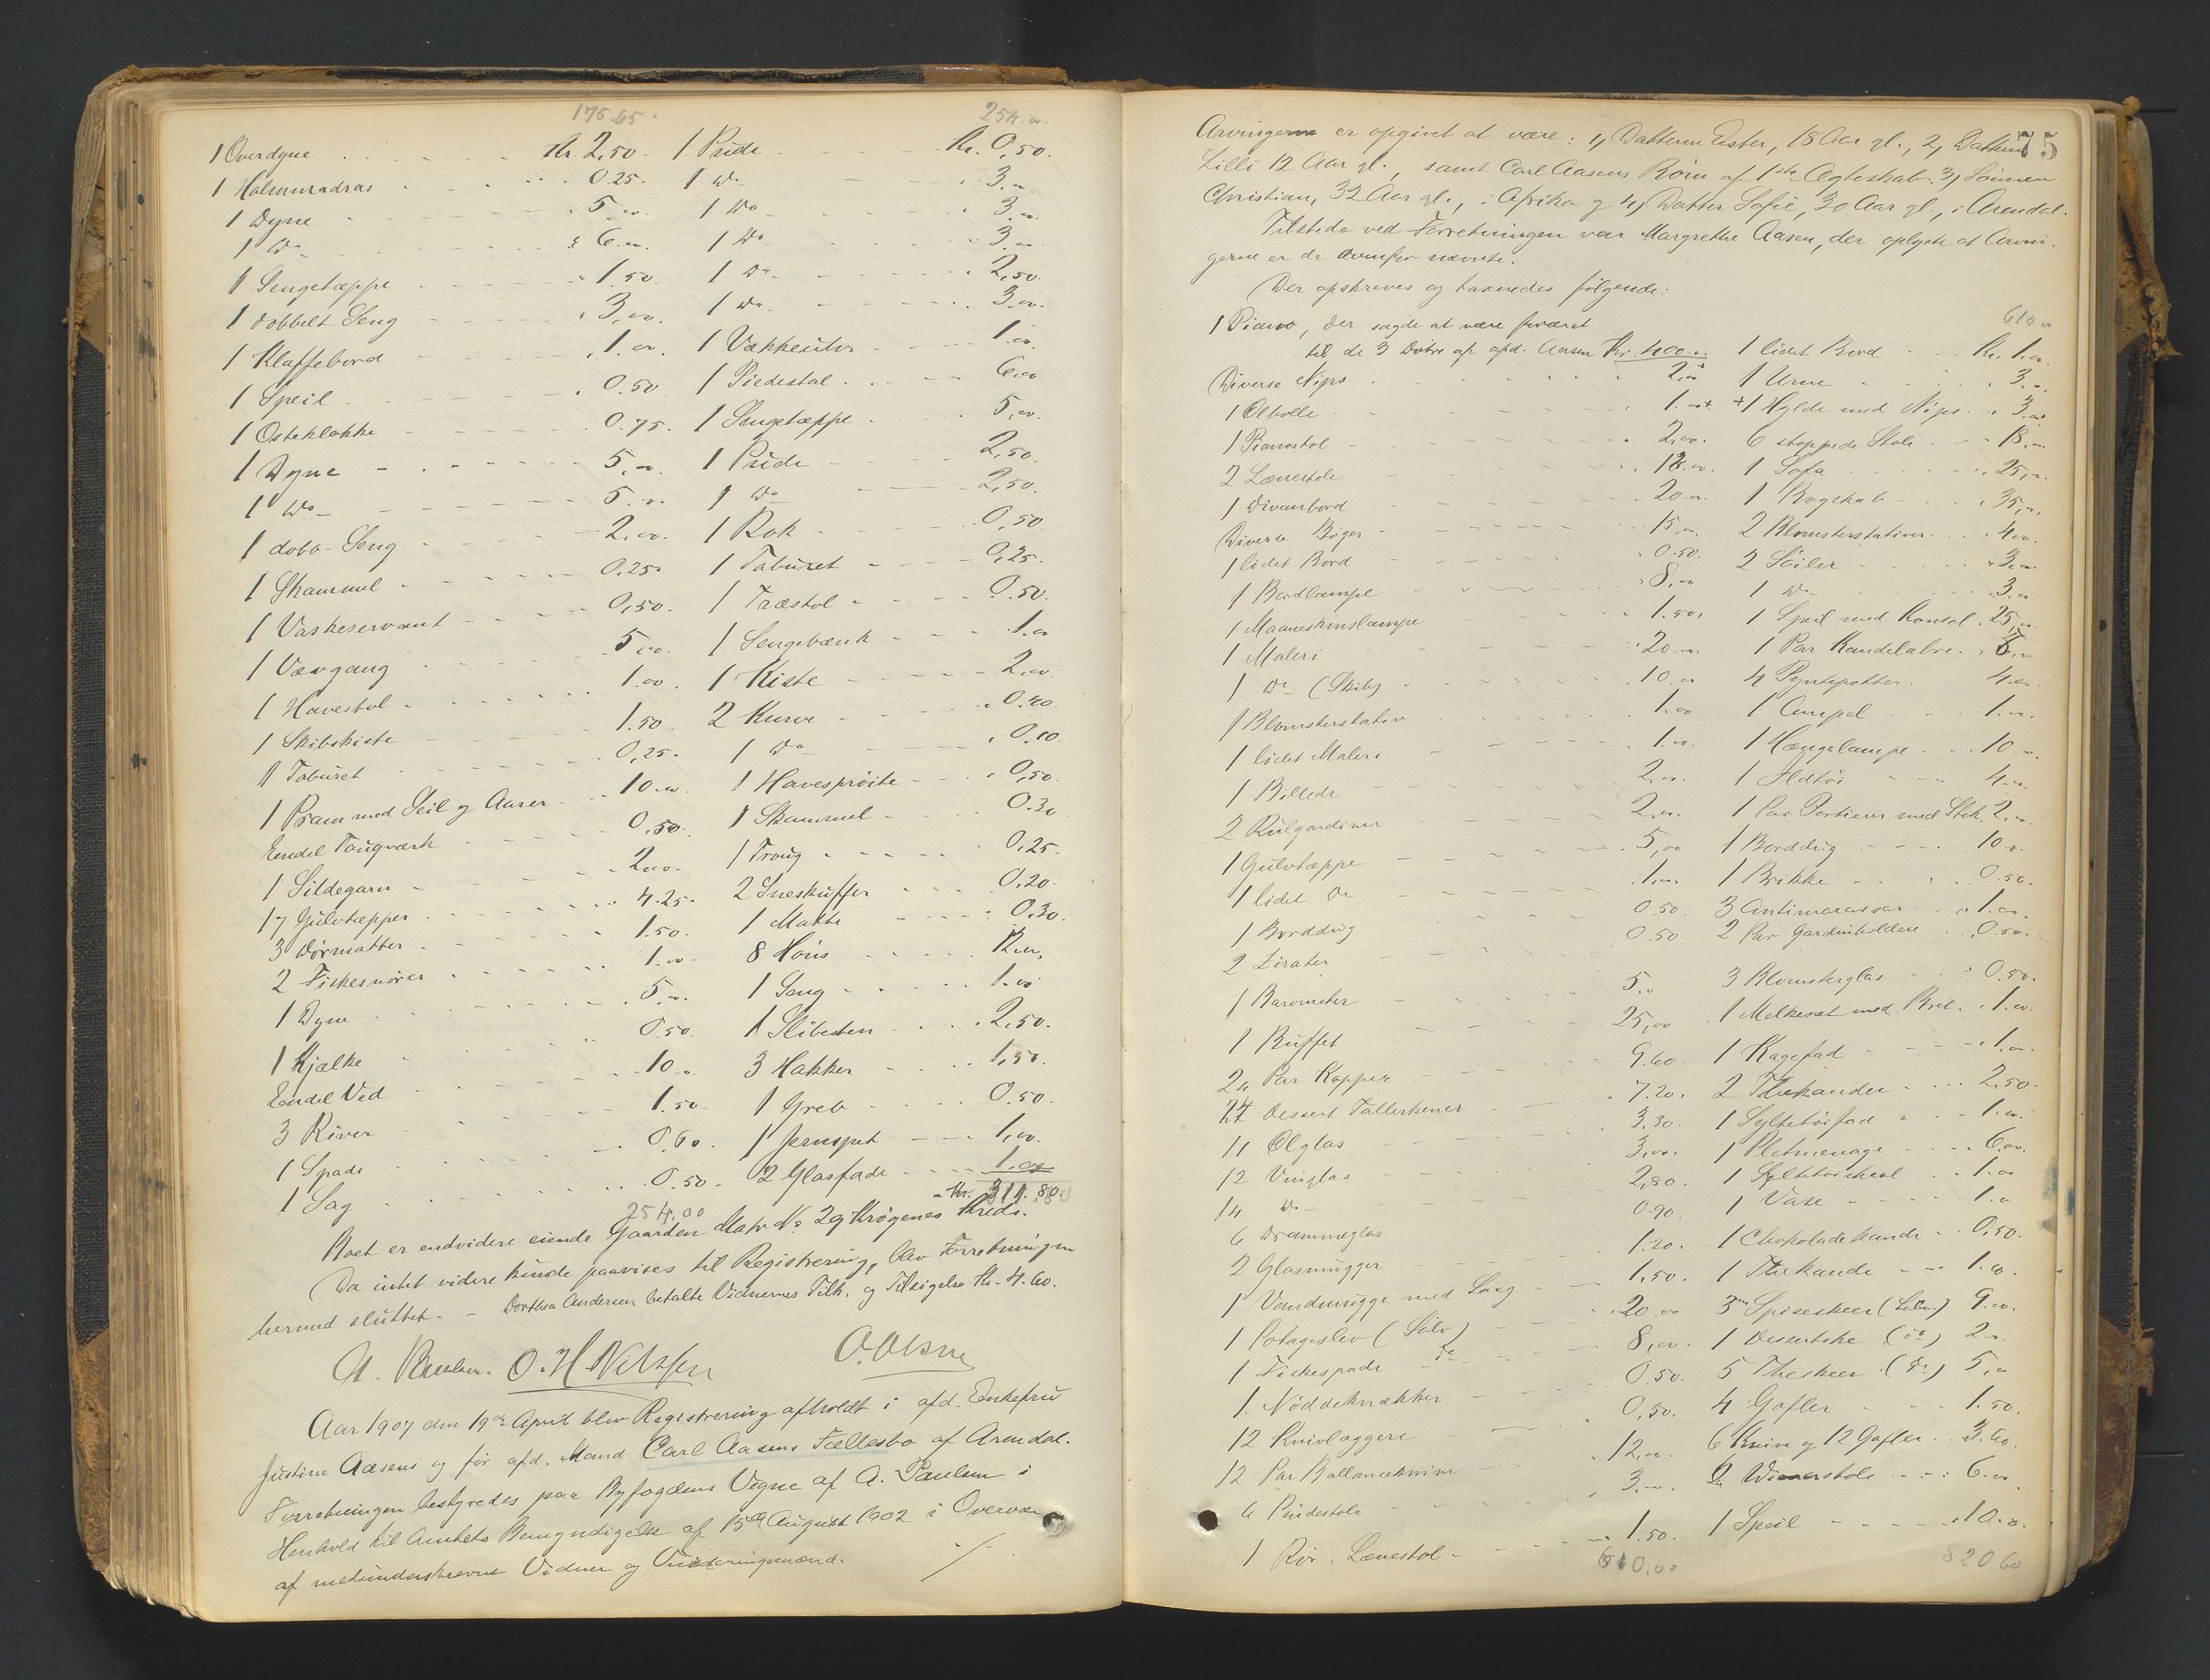 175.65
254.00
1 Overdyne Kr. 2,50.
1 Halmmadras 0.25.
1 Dyne 5,00.
1 Do 6.00.
1 Sengetæppe 1.50
1 dobbelt Seng 3,00.
1 Klaffebord 1.00
1 Speil 0.50
1 Osteklokke 0.75.
1 Dyne 5,00.
1 Do 5.00.
1 dobb. Seng 2,00.
1 Skammel 0.25
1 Vaskeservant 0,50.
1 Vævgang 5,00.
1 Havestol 1.00
1 Skibskiste 1.50
1 Taburet 0,25.
1 Pram med Seil og Aarer 10.00.
Endel Taugværk 0,50.
1 Sildegarn 2.00.
17 Gulvtæpper 4.25.
3 Dørmatter 1.50.
2 Fiskesnører 1.00
1 Dyne 5.00.
1 Kjælke 0.50.
Endel Ved 10.00
3 River 1.50.
1 Spade 0.60.
1 Sag 0.50.
254.00
1 Pude Kr. 0,50.
1 Do 3.00
1 Do 3.00
1 Do 3.00
1 Do 2,50.
1 Do 3.00.
1 Vækkeuhr 1.00.
1 Piedestal 6.00
1 Sengetæppe 5,00.
1 Pude 2,50.
1 Do 2,50.
1 Rok 0,50
1 Taburet 0,25.
1 Træstol 0.50.
1 Sengebænk 1.00
1 Kiste 2.00.
2 Kurve 0.40
1 Do 0.10.
1 Havesprøite 0,50.
1 Skammel 0.30
1 Traug 0,25.
2 Sneskuffer 0,20.
1 Matte 0,30.
8 Høns 12.00.
1 Sang 1.00
1 Slibesten 2,50.
3 Hakker 1,50.
1 Greb 0.50.
1 Jernspet 1,00.
2 Glasfade 1.00
Kr. 311.80.
Boet er endvidere eiende Gaarden Matr. No 29 Krøgenes Kreds.
Da intet videre kunde paavises til Registrering, blev Forretningen
hermed sluttet. - Dorthea Andersen betalte Vidnernes Tilk. og Tilsigelse Kr. 4.60.
A. Paulsen. O. H. Nilssen O. Olsen
Aar 1907 den 19de April blev Registrering afholdt i afd. Enkefru
Justine Aasens og før afd. Mand Carl Aasens Fællesbo af Arendal.
Forretningen bestyredes paa Byfogdens Vegne af A. Paulsen i
Henhold til Amtets Bemyndigelse af 15de August 1902 i Overvær
af medunderskrevne Vidner og Vurderingsmænd.
75
Arvingerne er opgivet at være: 1, Datteren Ester, 18 Aar gl., 2, Datteren
Lilli 12 Aar gl., samt Carl Aasens Børn af 1ste Ægteskab: 3, Sønnen
Christian, 32 Aar gl., i Afrika og 4, Datter Sofie, 30 Aar gl., i Arendal.
Tilstede ved Forretningen var Margrethe Aasen, der oplyste at Arvin-
gerne er de ovenfor nævnte.
Der opskreves og taxeredes følgende:
610.00
1 Piano, der sagde at være foræret
til de 3 Døtre af afd. Aasen Kr. 400.00
Diverse Nips 2.00
1 Ølbolle 1.00
1 Pianostol 2,00.
2 Lænestole 18.00.
1 Divanbord 20.00.
Diverse Bøger 15.00
1 lidet Bord 0.50.
1 Bordlampe 8,00
1 Maaneskinslampe 1.50.
1 Maleri 20.00.
1 Do (Skib) 10.00
1 Blomsterstativ 1.00
1 lidet Maleri 1.00.
1 Billede 2.00.
2 Rulgardiner 2,00.
1 Gulvtæppe 5,00
1 lidet Do 1.00.
1 Borddug 0.50.
2 Zirater 0.50
1 Barometer 5.00
1 Buffet 25,00
24 Par Kopper 9.60.
24 Dessert Tallerkener 7.20.
11 Ølglas 3.30.
12 Vinglas 3,00.
14 Do 2,80.
6 Drammeglas 0.90
2 Glasmugger 1.20.
1 Vandmugge med Laag 1,50.
1 Potageslev (Sølv) 20.00
1 Fiskespade Do 8,00.
1 Nøddeknækker 0.50.
12 Knivlæggere 0,50.
12 Par Ballanceknive 12,00.
6 Pindestole 3.00.
1 Rør-Lænestol 1.50.
610.00
1 lidet Bord Kr. 1.00
1 Urne 3.00
+1 Hylde med Nips 3.00
6 stoppede Stole 18.00
1 Sofa 25,00.
1 Bogskab 35,00.
2 Blomsterstativer 4.00.
2 Søiler 3.00
1 Do 3.00
1 Speil med Konsol 25.00
1 Par Kandelabre
4 Pyntepotter 4.00.
1 Ampel 1.00.
1 Hængelampe 10.00
1 Ildtøi 4.00
1 Par Portierer med Stok 2.00
1 Borddug 10.00
1 Brikke 0.50.
3 Antimacassar 1.00.
2 Par Gardinholdere 0.50.
3 Blomsterglas 0.50.
1 Melkesæt med Bret 1.00.
1 Kagefad 1.00.
2 Thekander 2.50.
1 Syltetøifad 1.00.
1 Pletmenage 6.00.
1 Syltetøiskaal 1.00
1 Vase 1.00
1 Chokoladekande 0,50.
1 Thekande 1.00.
3 Spiseskeer (Sølv) 9.00.
1 Dessertske (Do) 2.00
5 Theskeer (Do) 5,00
4 Gafler 1.50.
6 Knive og 12 Gafler 3.60.
2 Wienerstole 6.00
1 Speil 10.00.
820 60